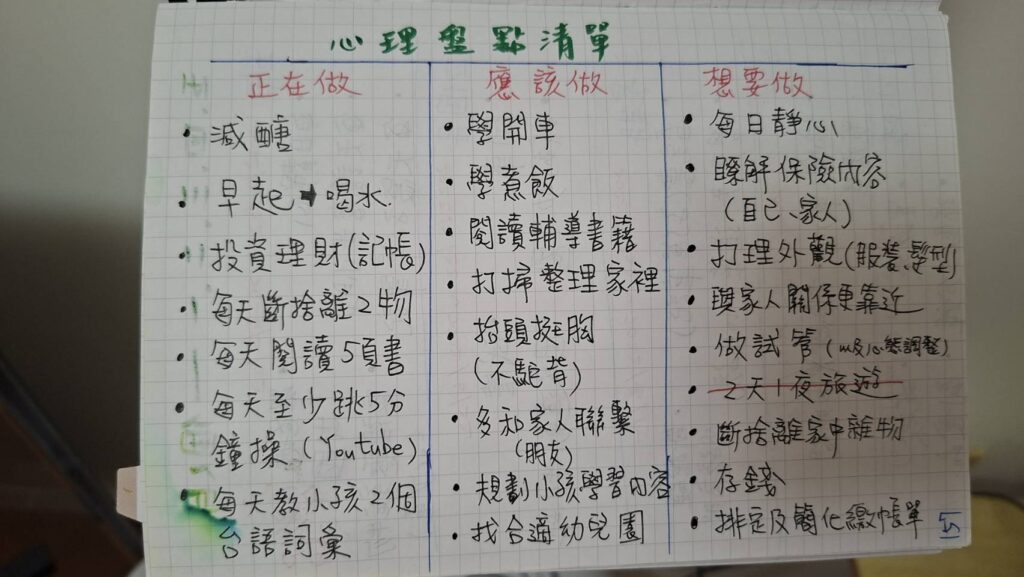 心理盤點清單
正在做
• 減醣
• 早起➡喝水
• 投資理財(記帳)
• 每天斷捨離2物
• 每天閱讀5頁書
• 每天至少跳5分
鐘操(Youtube)
• 每天教小孩2個
台語詞彙
應該做
• 學開車
• 學煮飯
• 閱讀輔導書籍
• 打掃整理家裡
• 抬頭挺胸
(不駝背)
• 多和家人聯繫
(朋友)
• 規劃小孩學習內容
• 找合適幼兒園
想要做
• 每日靜心
• 瞭解保險內容
(自己、家人)
• 打理外觀(服裝、髮型)
• 與家人關係更靠近
• 做試管(以及心態調整)
• 2天1夜旅遊
• 斷捨離家中離物
• 存錢
• 排定及簡化繳帳單